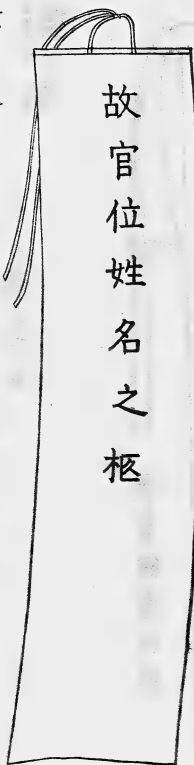 故官位姓名之柩